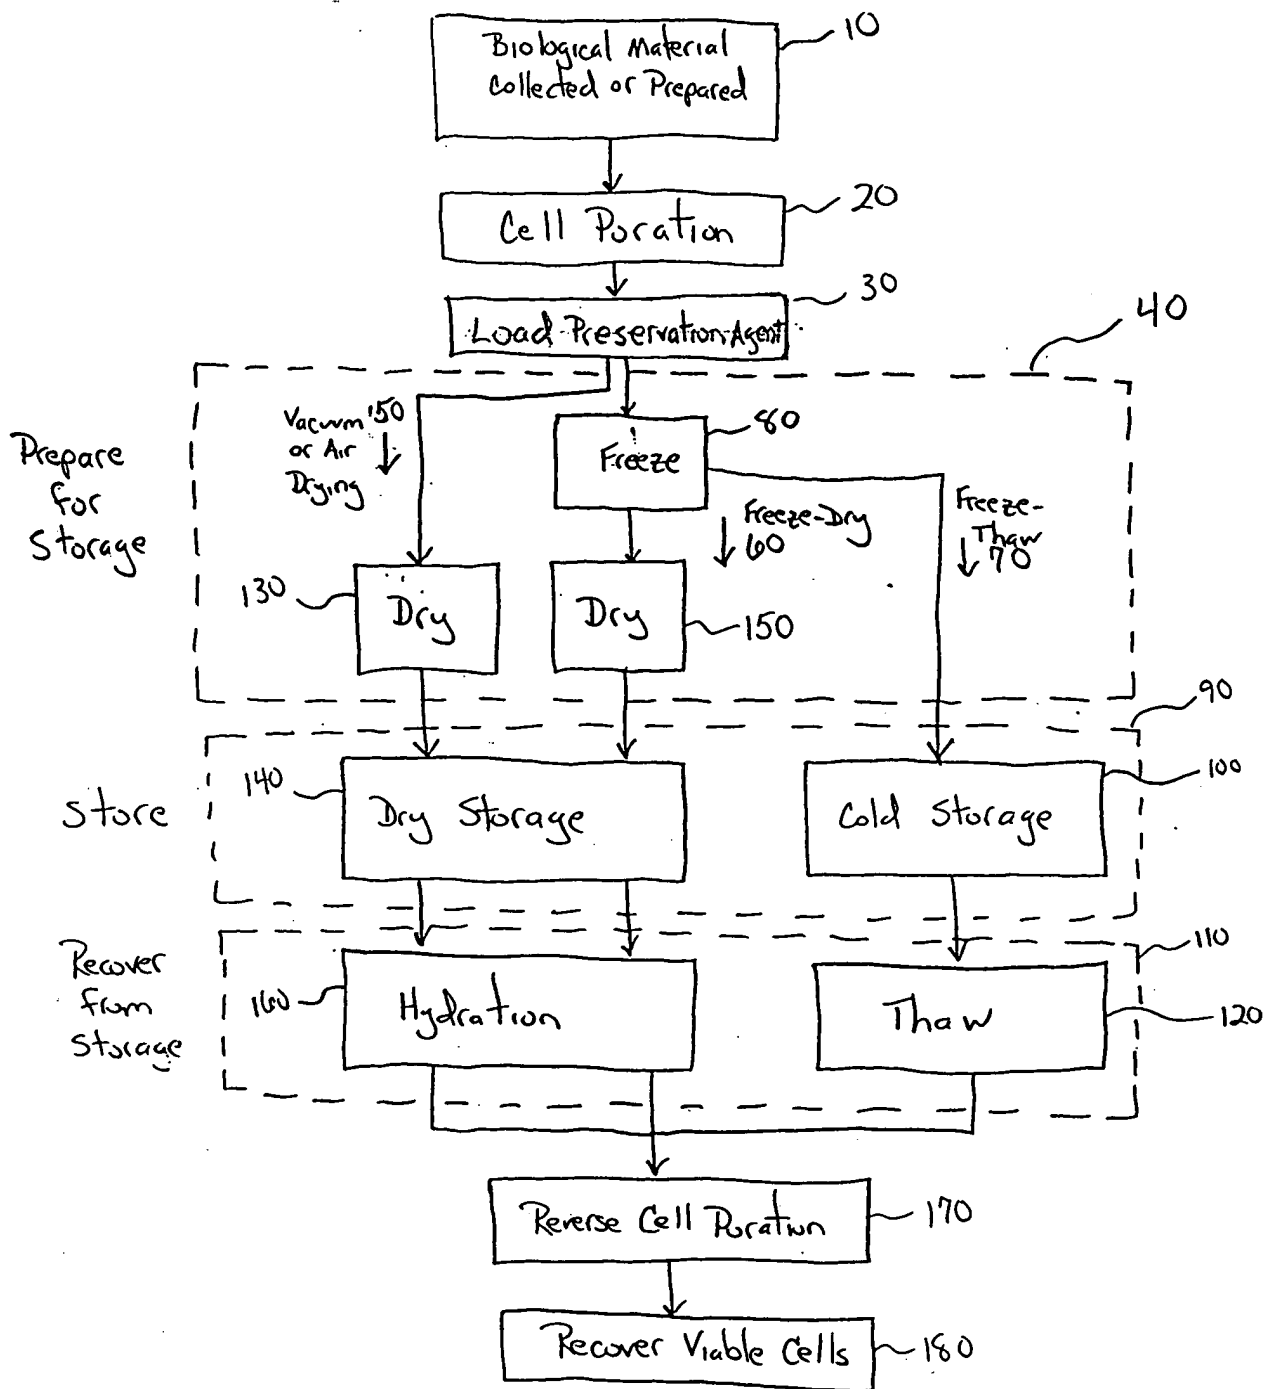 Biological Material
Collected or Prepared
10
Cell Poration
20
Load Preservation Agent
30
40
Prepare
for
Storage
Vacuum 150
or Air
Drying
Freeze
80
Freeze-Dry
60
Freeze-
Thaw
70
130
Dry
Dry
150
90
Store
140
Dry Storage
Cold Storage
100
Recover
from
Storage
110
160
Hydration
Thaw
120
Reverse Cell Poration
170
Recover Viable Cells
180